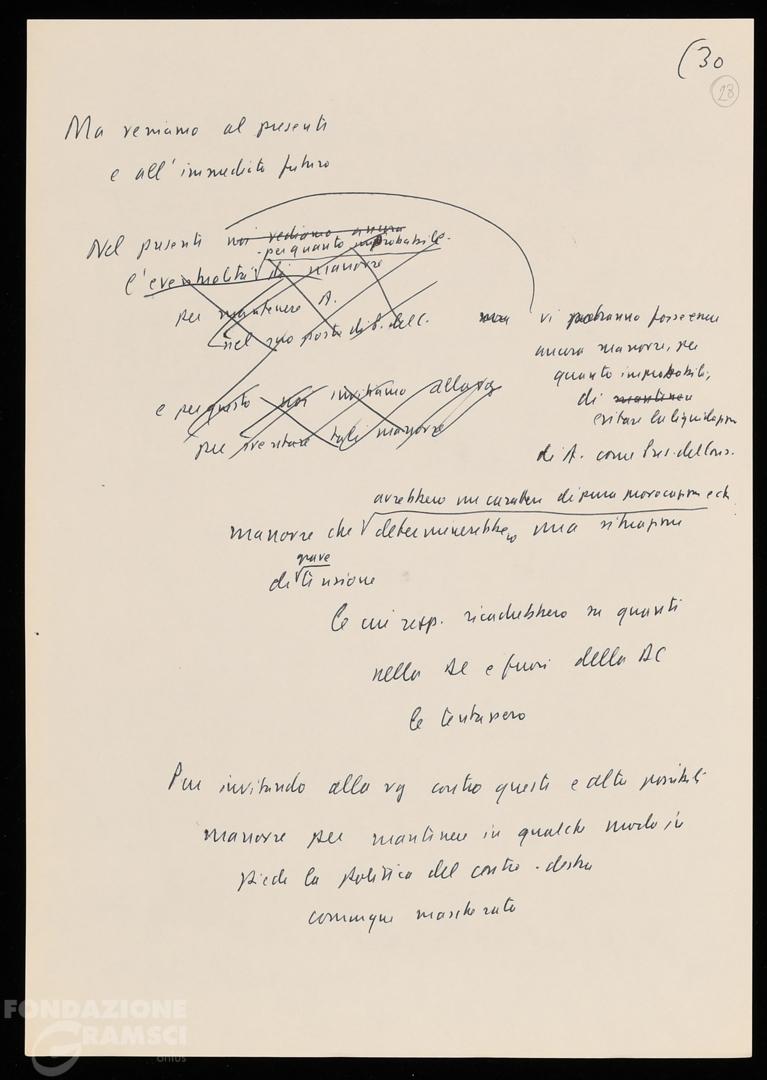 (30
28
Ma veniamo al presente
e all'immediato futuro
Nel presente noi vediamo ancora
per quanto improbabile
l'eventualità di manovre
per mantenere A.
nel suo posto di P. del C.
e per questo noi invitiamo alla vg
per sventare tali manovre
ma vi potranno essere
ancora manovre, per
quanto improbabili,
di mantenere
evitare la liquidazione
di A. come Pres. del Cons.
avrebbero un carattere di pura provocazione e che
manovre che determinerebbero una situazione
grave
di tensione
le cui resp. ricadrebbero su quanti
nella DC e fuori della DC
le tentassero
Pur invitando alla vg contro questi e altri possibili
manovre per mantenere in qualche modo in
piedi la politica del centro-destra
comunque mascherata
FONDAZIONE
GRAMSCI
onlus